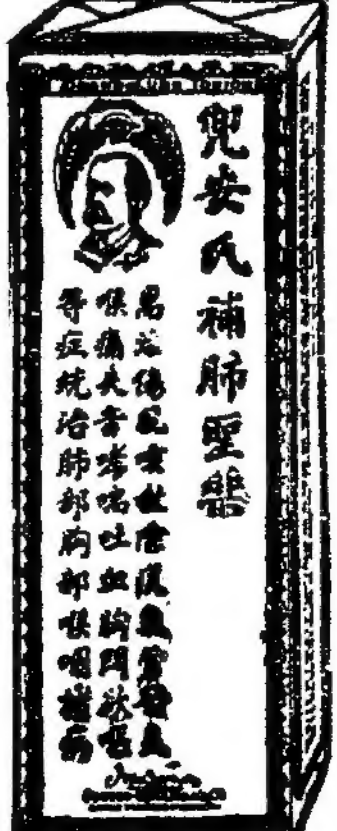 兜安氏補肺聖藥
治傷風咳嗽痰氣管發炎
喉痛失音哮喘吐血胸悶
等症統治肺部胸部喉咽諸病